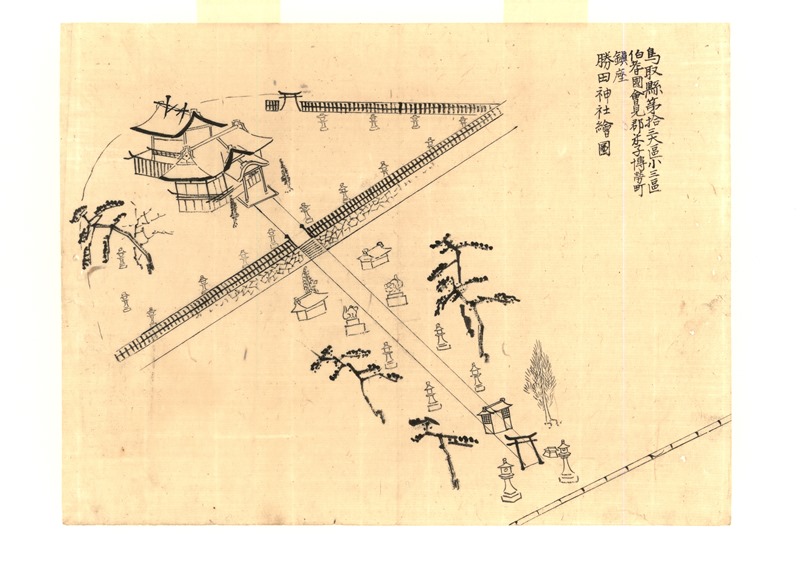 鳥取縣第拾三大區小三區
伯耆國會見郡米子博勞町
鎮座
勝田神社繪圖